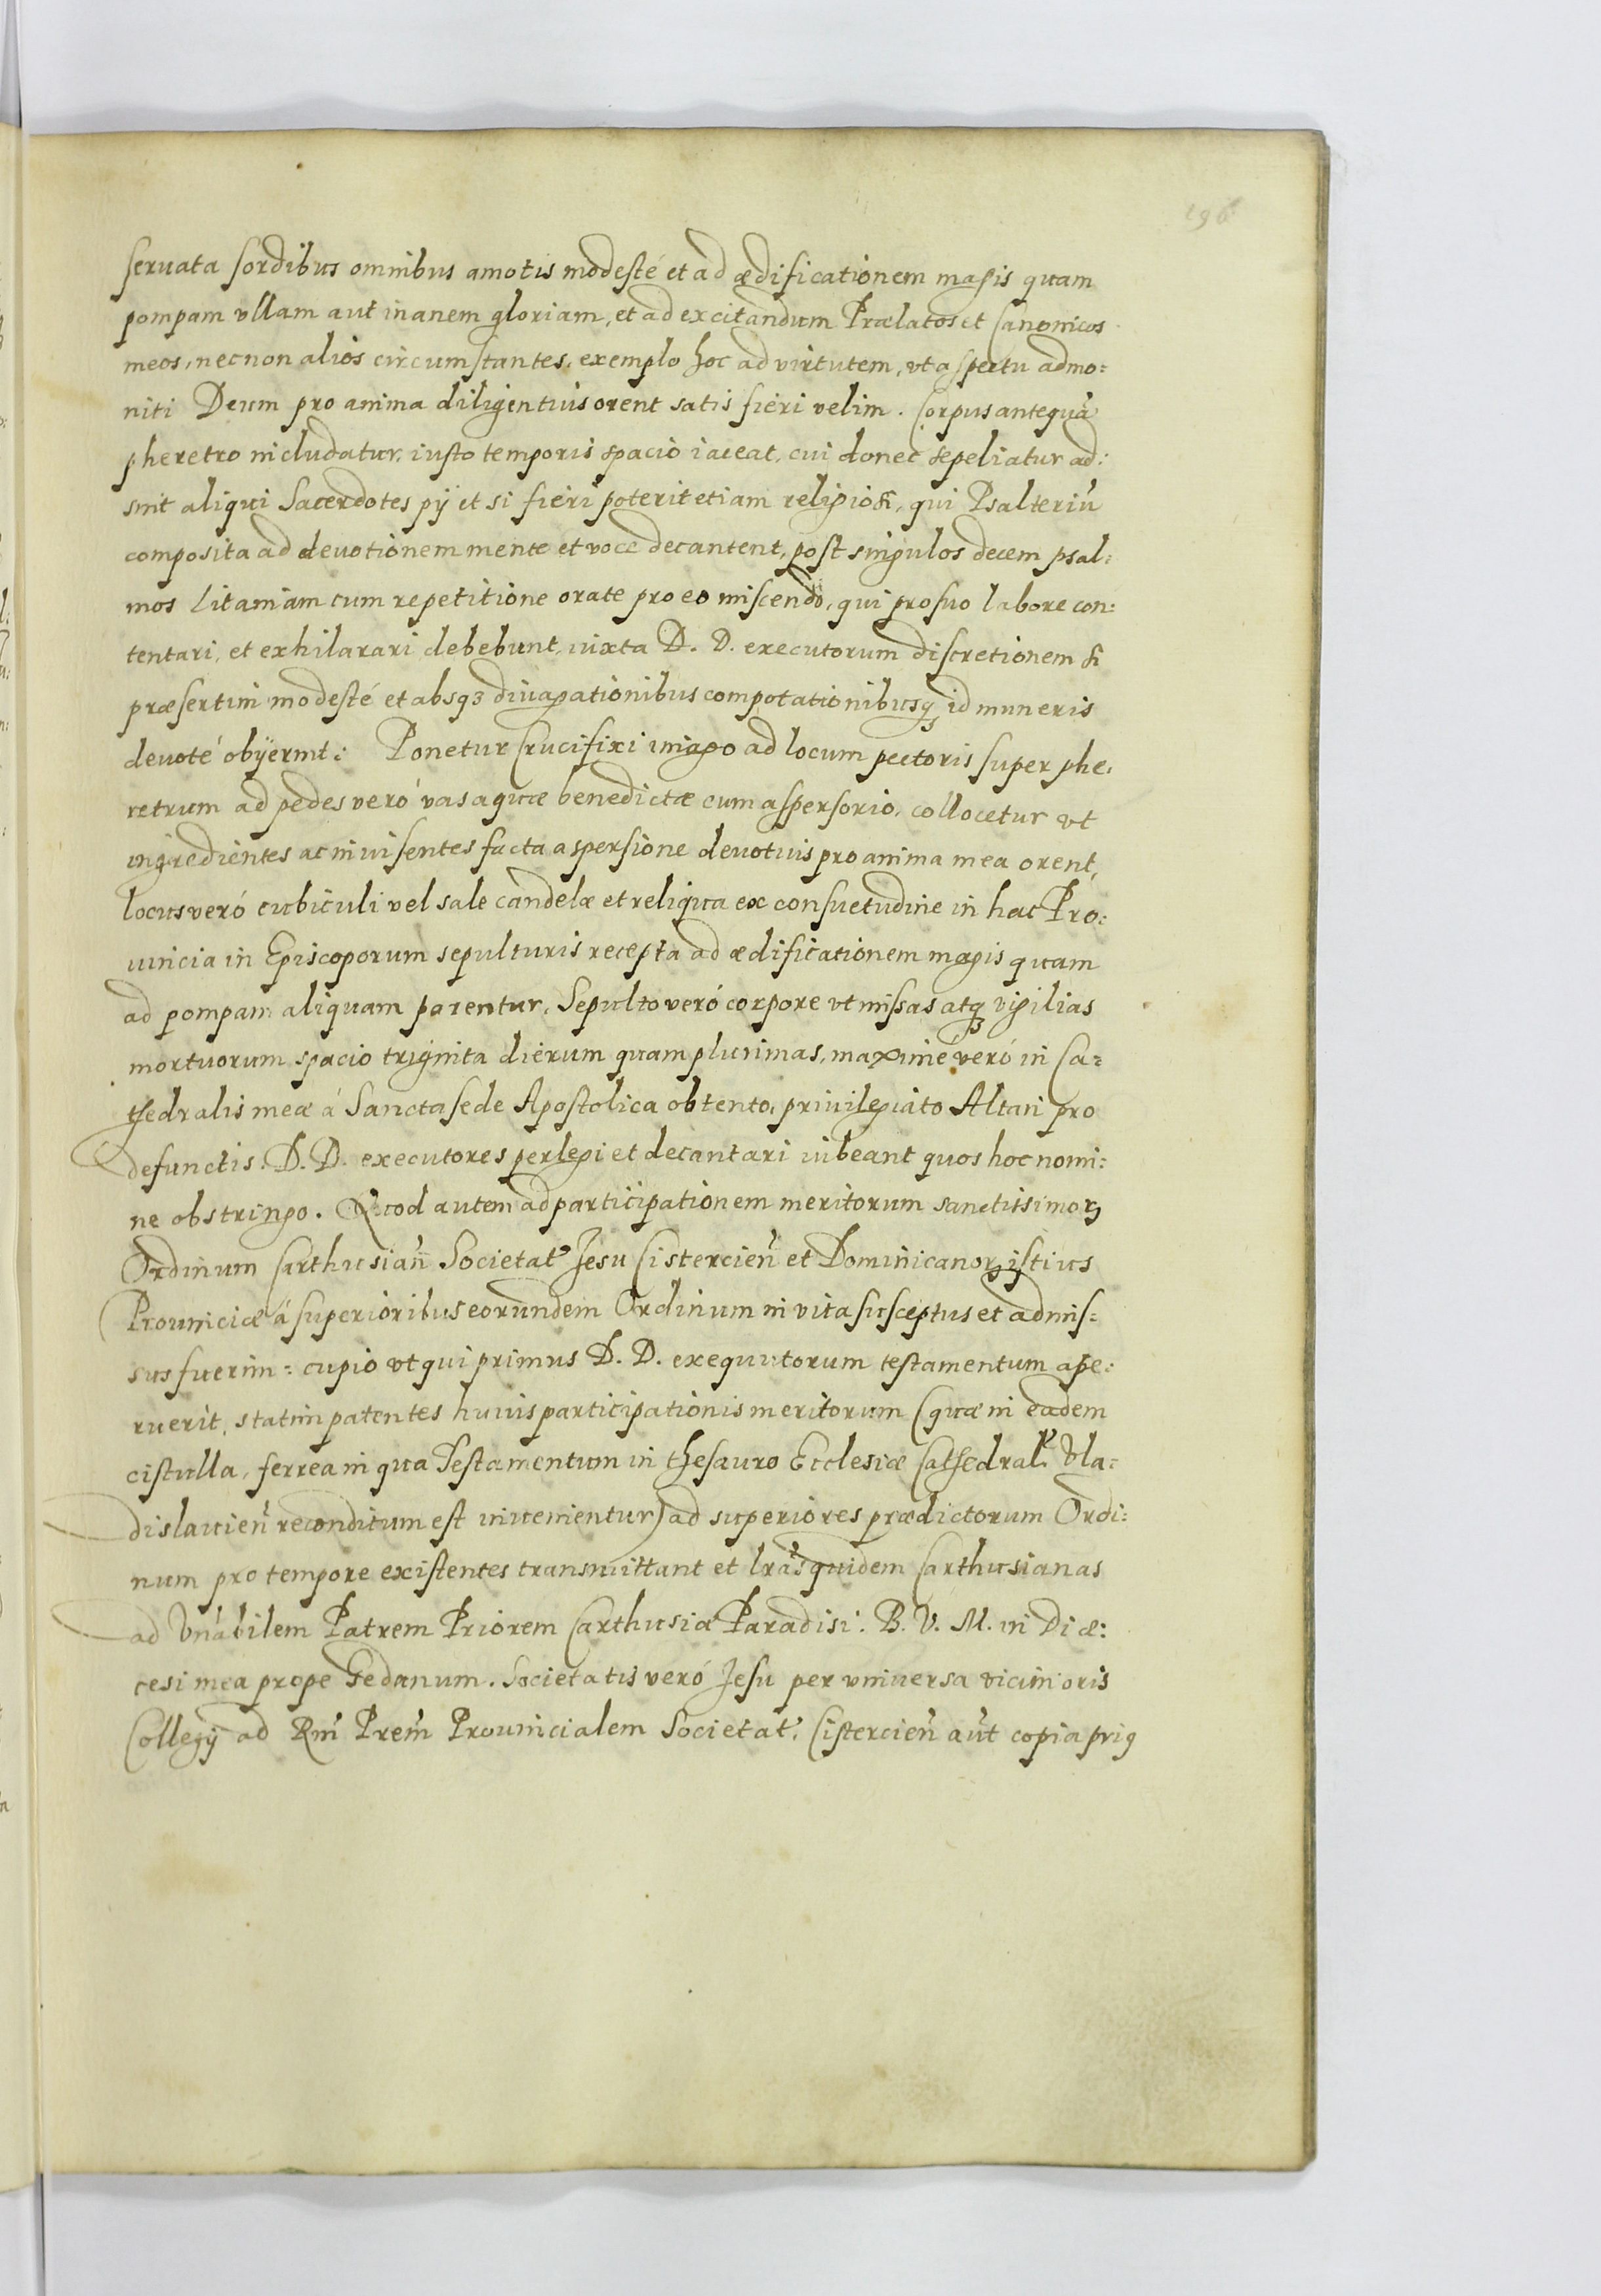 196
seruata sordibus omnibus amotis modesté et ad ædificationem magis quam
pompam vllam aut inanem gloriam, et ad excitandum Prælatos et Canonicos
meos, necnon alios circumstantes, exemplo hoc ad virtutem, vt aspectu admo:
niti Deum pro anima diligentius orent satis fieri velim. Corpus antequã
pheretro includatur, iusto temporis spacio iaceat, cui donec sepeliatur ad:
sint aliqui Sacerdotes pij et si fieri poterit etiam religiosi, qui Psalteriũ
composita ad deuotionem mente et voce decantent, post singulos decem psal:
mos Litaniam cum repetitione orate pro eo miscendo, qui pro suo labore con:
tentari, et exhilarari debebunt, iuxta D. D. executorum discretionem si
præsertim modesté et absqз diuagationibus compotationibusqз id muneris
deuoté obijerint: Ponetur Crucifixi imago ad locum pectoris super phe,
retrum ad pedes veró vas aquæ benedictæ cum aspersorio, collocetur vt
ingredientes ac inuisentes facta aspersione deuotius pro anima mea orent,
locus veró cubiculi vel sale candelæ et reliqua ex consuetudine in hac Pro:
uincia in Episcoporum sepulturis recepta ad ædificationem magis quam
ad pompam aliquam parentur. Sepulto veró corpore vt missas atqз vigilias
mortuorum spacio triginta dierum quam plurimas, maximé veró in Ca:
thedralis meæ á Sancta sede Apostolica obtento, priuilegiato Altari pro
defunctis. D. D. executores perlegi et decantari iubeant quos hoc nomi:
ne obstringo. Quod autem ad participationem meritorum sanctissimoꝝ
Ordinum Carthusiañ Societat' Jesu Cistercieñ et Dominicanoꝝ istius
Prouinciæ á superioribus eorundem Ordinum in vita susceptus et admis:
sus fuerim: cupio vt qui primus D. D. exequutorum testamentum ape:
ruerit, statim patentes huius participationis meritorum (quæ in eadem
cistulla, ferrea in qua Testamentum in thesauro Ecclesiæ Cathedral' Vla:
dislauieñ reconditum est inuenientur) ad superiores prædictorum Ordi:
num pro tempore existentes transmittant et lras quidem Carthusianas
ad Vnabilem Patrem Priorem Carthusiæ Paradisi. B. V. M. in Diæ:
cesi mea prope Gedanum. Societatis veró Jesu per vniuersa vicinioris
Collegij ad Rm̃ Prem̃ Prouincialem Societat'. Cistercieñ aũt copia priꝯ